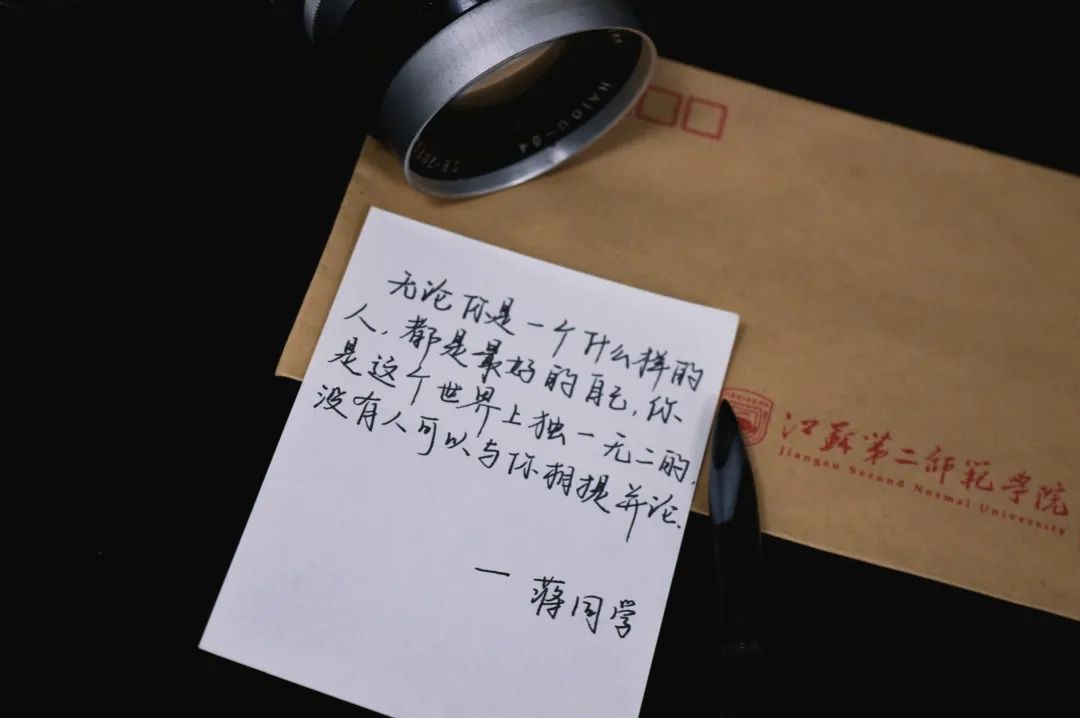 HAIOU-64
无论你是一个什么样的
人，都是最好的自己，你
是这个世界上独一无二的，
没有人可以与你相提并论。
— 蒋同学
江苏第二师范学院
Jiangsu Second Normal University